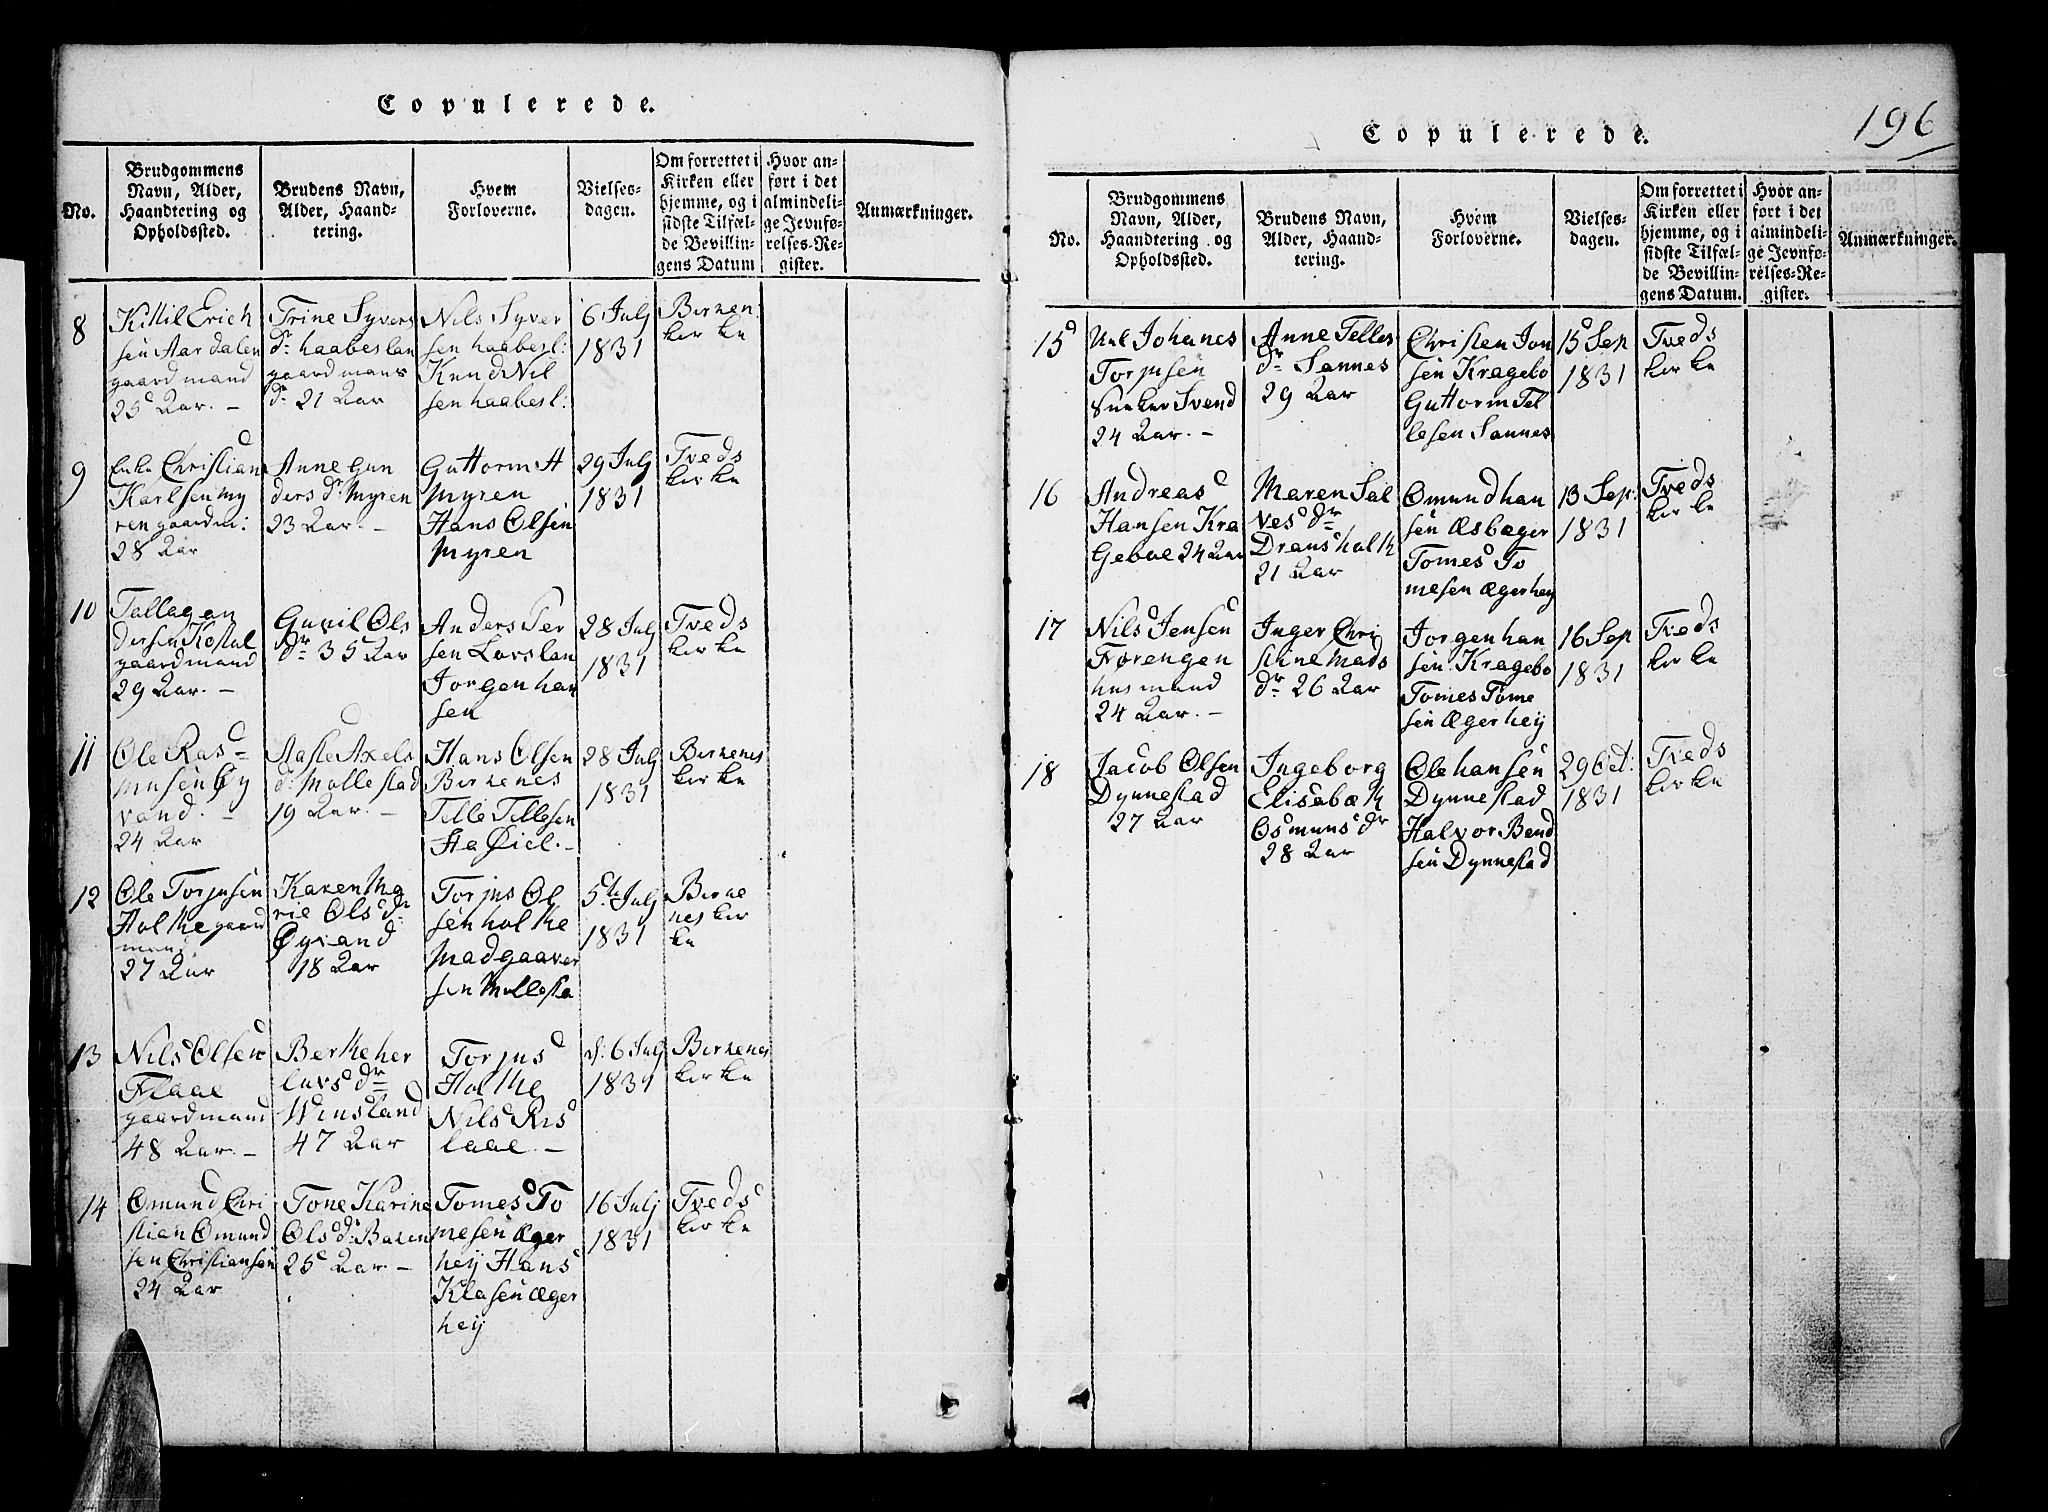 Copulerede.
No.
Brudgommens
Navn, Alder,
Haandtering og
Opholdssted.
Brudens Navn,
Alder, Haand-
tering.
Hvem
Forloverne.
Vielses-
dagen.
Om forrettet i
Kirken eller
hjemme, og i
sidste Tilfæl-
de Bevillin-
gens Datum
Hvor an-
ført i det
almindeli-
ge Jevnfø-
relses-Re-
gister.
Anmærkninger.
8
Kittil Erich
sen Aardalen
gaardmand
25 Aar. –
Trine Syvers
dr. haabeslan
gaardmans
dr. 21 Aar
Nils Syver
sen haabesl:
Knud Nil
sen haabesl:
6 July
1831
Birken:
kirke
9
Enke Christian
Karlsen my
ren gaardm:
28 Aar
Anne Gun
ders dr. Myren
23 Aar. –
Guttorm A
Myren
Hans Olsen
Myren
29 July
1831
Tveds
kirke
10
Tallag an
dersen
gaardmand
29 Aar. –
Guvil Ols
dr. 35 Aar
Anders Per
sen Lovslan
Jorgen han
sen
28 July
1831
Tveds
kirke
11
Ole Ras=
musen Øy
vand. –
24 Aar
Aasle Axels
d. Mollestad
19 Aar. –
Hans Olsen
Birkenes
Telle Tellesen
28 July
1831
Birkenes
kirke
12
Ole Torjusen
Holthe gaard
mand
27 Aar
Karen Ma
rie Ols dr.
Øyvand
18 Aar
Torjus Ol
sen holthe
Madgaaver
sen Mollesta
5te July
1831
Birke
nes kir
ke
13
Nils Olsen
Flaae
gaardmand
48 Aar. –
Berthe her
luvs dr
Winsland
47 Aar
Torjus
Holthe
Nils Ris
laae. –
d: 6 July
1831
Birkenes
kirke
14
Omund Chri
stian Omund
sen Christiansen
24 Aar
Tone Karine
Ols dr. Baken
25 Aar. –
Tomes To
mesen Æger
hey Hans
Klasen Æger
hey
16 July
1831
Tveds
kirke
196
Copulerede.
No.
Brudgommens
Navn, Alder,
Haandtering og
Opholdssted.
Brudens Navn,
Alder, Haand-
tering.
Hvem
Forloverne.
Vielses-
dagen.
Om forrettet i
Kirken eller
hjemme, og i
sidste Tilfæl-
de Bevillin-
gens Datum.
Hvor an-
ført i det
almindeli-
ge Jevnfø-
relses-Re-
gister.
Anmærkninger.
15
Johanes
Torjusen
Sneker Svend
24 Aar. –
Anne Telles
dr. Sannes
29 Aar
Christen Jon
sen Kragebo
Guttorm Tel
lesen Sannes
15 Sep
1831
Tveds
kirke
16
Andreas
Hansen Kra
Geboe 24 Aar
Maren Sal
ves dr
Dransholt
21 Aar
Omund han
sen Æsbæger
Tomes To
mesen Ægerhey
13 Sep:
1831
Tveds
kirke
17
Nils Jensen
Forengen
husmand
24 Aar. –
Inger Chri
stine Mads
dr. 26 Aar
Jorgen han
sen Kragebo
Tomes Tome
sen Ægerhey
16 Sep
1831
Tveds
kirke
18
Jacob Olsen
Dynnestad
27 Aar
Ingeborg
Elisabæth
Osmuns dr
28 Aar
Ole hansen
Dynnestad
Halvor Bend
sen Dynnestad
29 Oct:
1831
Tveds
kirke